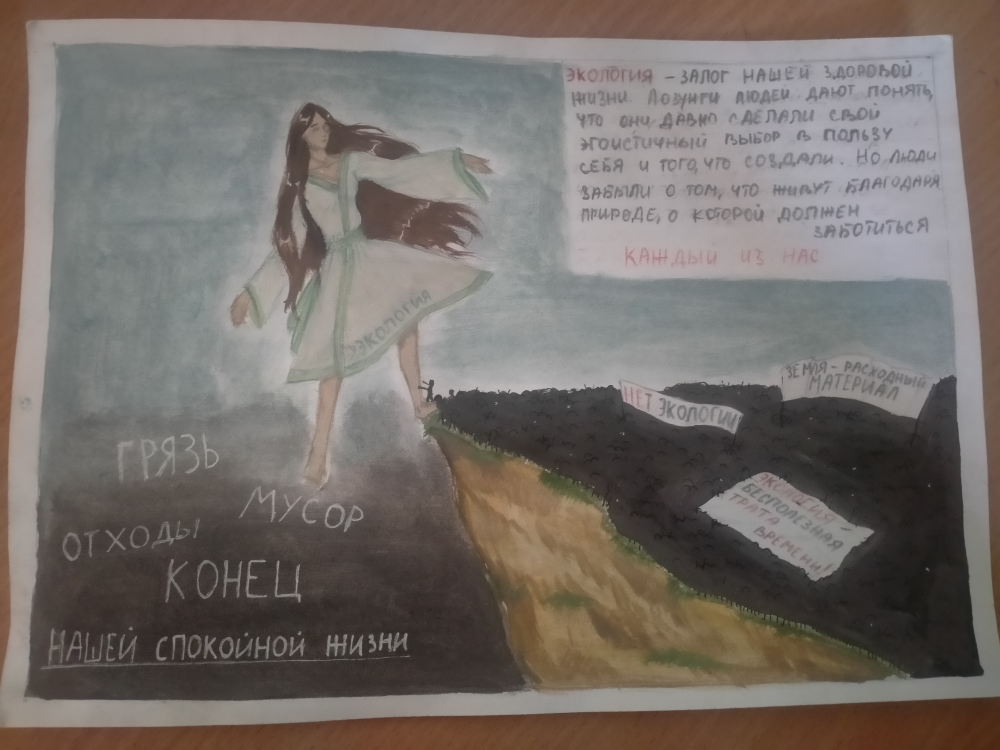 ЭКОЛОГИЯ – ЗАЛОГ НАШЕЙ ЗДОРОВОЙ
ЖИЗНИ. ЛОЗУНГИ ЛЮДЕЙ ДАЮТ ПОНЯТЬ,
ЧТО ОНИ ДАВНО СДЕЛАЛИ СВОЙ
ЭГОИСТИЧНЫЙ ВЫБОР В ПОЛЬЗУ
СЕБЯ И ТОГО, ЧТО СОЗДАЛИ. НО ЛЮДИ
ЗАБЫЛИ О ТОМ, ЧТО ЖИВУТ БЛАГОДАРЯ
ПРИРОДЕ, О КОТОРОЙ ДОЛЖЕН
ЗАБОТИТЬСЯ
КАЖДЫЙ ИЗ НАС
ЭКОЛОГИЯ
НЕТ ЭКОЛОГИИ
ЗЕМЛЯ – РАСХОДНЫЙ
МАТЕРИАЛ
ЭКОЛОГИЯ –
БЕСПОЛЕЗНАЯ
ТРАТА
ВРЕМЕНИ!
ГРЯЗЬ
МУСОР
ОТХОДЫ
КОНЕЦ
НАШЕЙ СПОКОЙНОЙ ЖИЗНИ